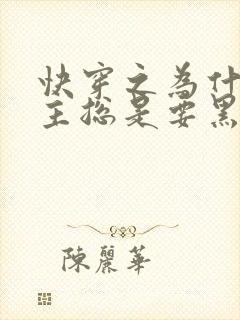 快穿之為什
主總是要黑
陳麗華